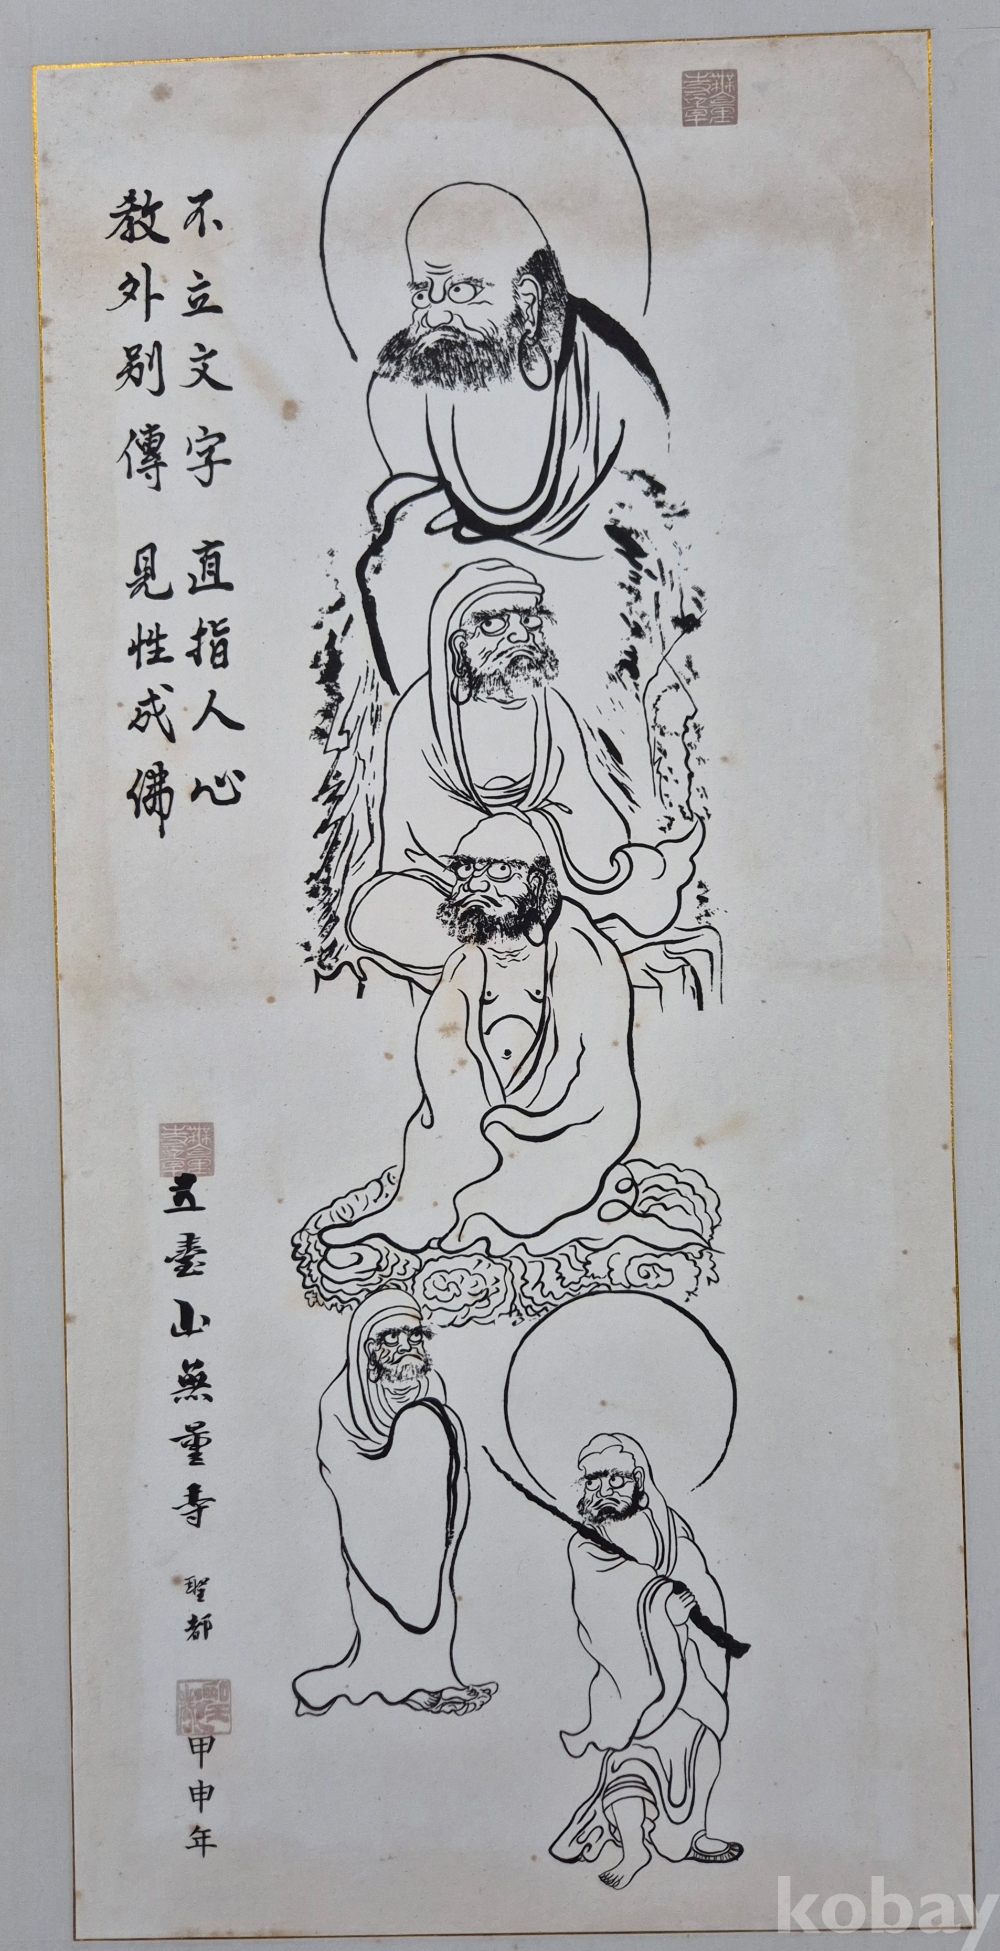 不立文字 直指人心
教外別傳 見性成佛
五臺山無量壽 聖都
甲申年
kobay